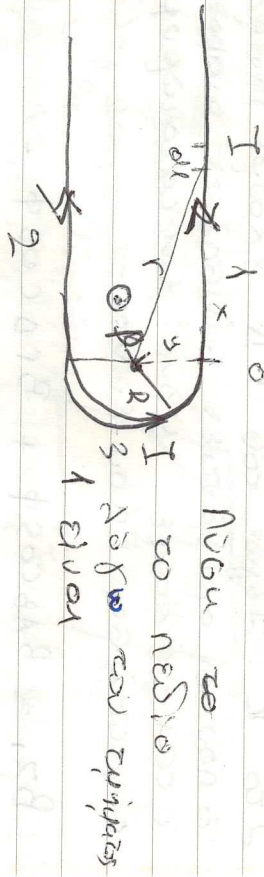 I 1 x 0
dl
r
y
R
I
2
3
Λύση το
το πεδίο
λόγω του τμήματος
1 είναι